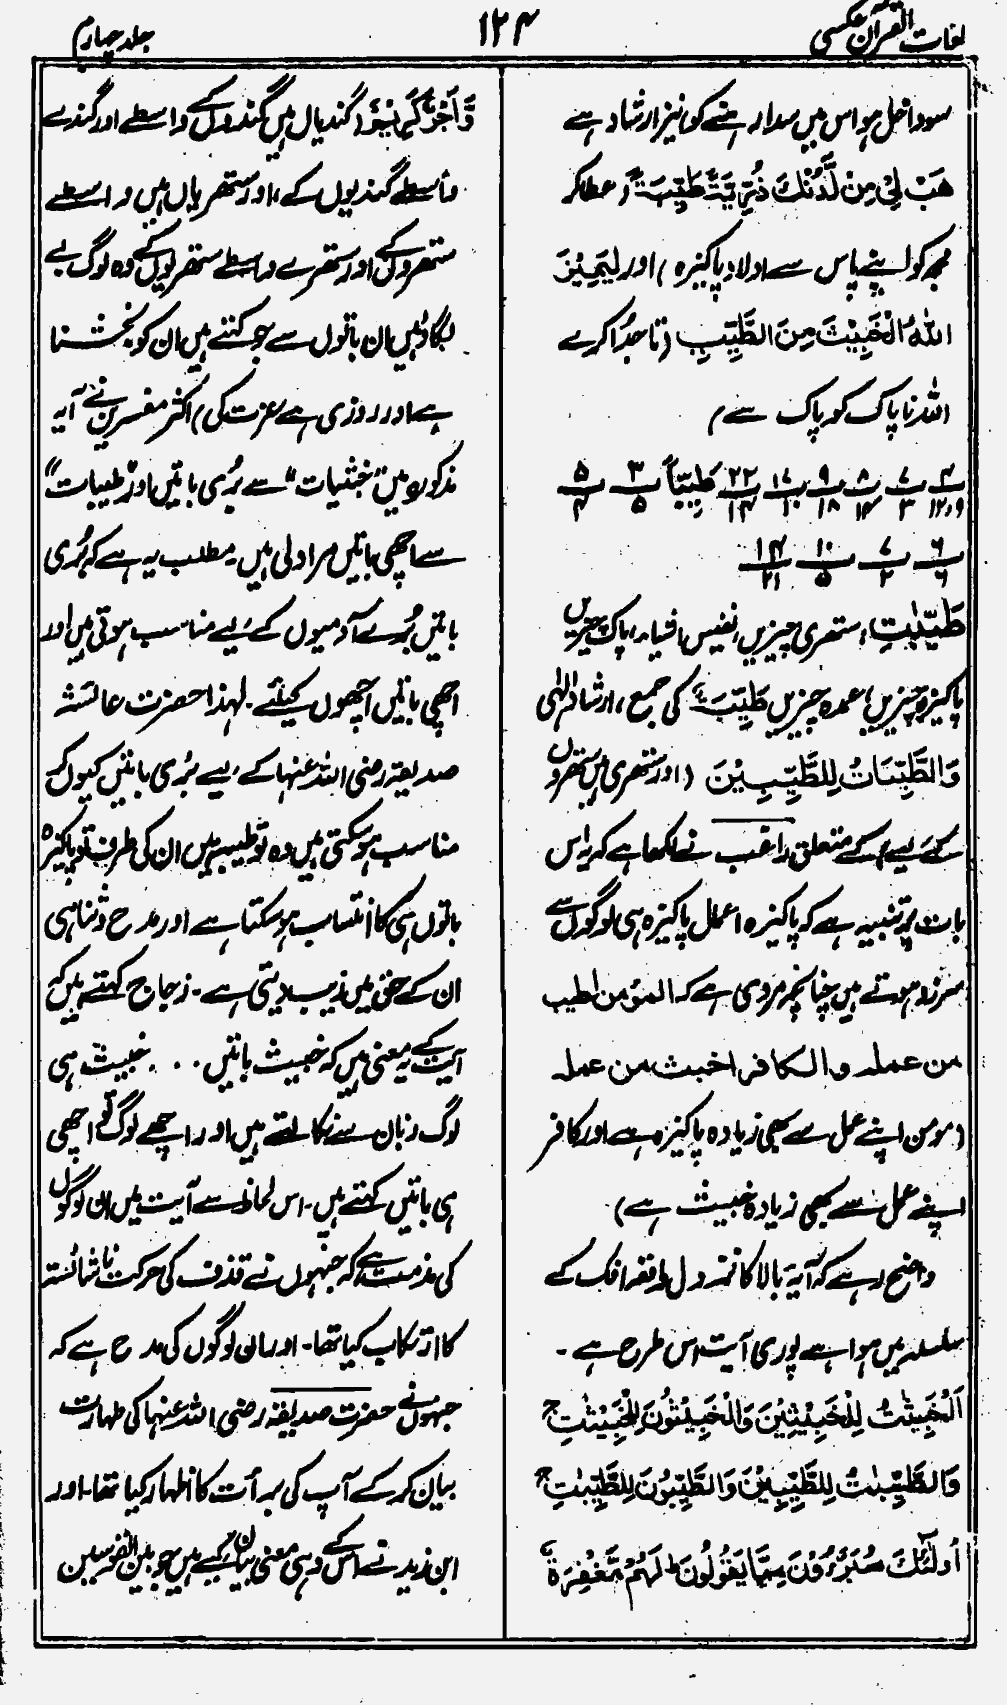 لغات القرآن عکسی
۱۲۴
جلد چہارم
سوداخل ہو اس میں سدا رہنے کو نیز ارشاد ہے
هَبْ لِیْ مِنْ لَّدُنْكَ ذُرِّیَّةً طَیِّبَةً (عطا کر
مجھ کو اپنے پاس سے اولاد پاکیزہ) اور لِیَمِیْزَ
اللّٰهُ الْخَبِیْثَ مِنَ الطَّیِّبِ (تا جدا کرے
اللہ ناپاک کو پاک سے)
۴ ۷ ۸ ۹ ۱۷ ۲۲ طَیِّبًا ۳ ۵
۹ و ۱۲ ۳ ۱۴ ۱۸ ۱۰ ۱۴ ۵ ۴
۶ ۷ ۱۰ ۱۴
۶ ۲ ۵ ۲۱
طَیِّبٰتٍ، ستھری چیزیں، نفیس اشیاء، پاک چیزیں
پاکیزہ چیزیں، عمدہ چیزیں طَیِّبَةٌ کی جمع، ارشاد الٰہی
وَالطَّیِّبَاتُ لِلطَّیِّبِیْنَ (اور ستھری ہیں ستھروں
کے لیے) کے متعلق راغب نے لکھا ہے کہ یہ اس
بات پر تنبیہ ہے کہ پاکیزہ اعمال پاکیزہ ہی لوگوں سے
سرزد ہوتے ہیں چنانچہ مروی ہے کہ المؤمن اطیب
من عملہ والکافر اخبث من عملہ
(مومن اپنے عمل سے بھی زیادہ پاکیزہ ہے اور کافر
اپنے عمل سے بھی زیادہ خبیث ہے)
واضح رہے کہ آیۂ بالا کا نزول واقعہ افک کے
سلسلہ میں ہوا ہے پوری آیت اس طرح ہے ۔
اَلْخَبِیْثٰتُ لِلْخَبِیْثِیْنَ وَالْخَبِیْثُوْنَ لِلْخَبِیْثٰتِ ج
وَالطَّیِّبٰتُ لِلطَّیِّبِیْنَ وَالطَّیِّبُوْنَ لِلطَّیِّبٰتِ ج
اُولٰٓئِكَ مُبَرَّءُوْنَ مِمَّا یَقُوْلُوْنَ ط لَهُمْ مَّغْفِرَةٌ
وَّرِزْقٌ كَرِیْمٌ (گندیاں ہیں گندوں کے واسطے اور گندے
واسطے گندیوں کے، اور ستھریاں ہیں واسطے
ستھروں کے اور ستھرے واسطے ستھریوں کے وہ لوگ بے
لگاؤ ہیں ان باتوں سے جو کہتے ہیں ان کو بخشنا
ہے اور روزی ہے عزت کی) اکثر مفسرین نے آیہ
مذکورہ میں ”خبثیات“ سے بُری باتیں اور ”طیبات“
سے اچھی باتیں مراد لی ہیں ۔ مطلب یہ ہے کہ بُری
باتیں بُرے آدمیوں کے لیے مناسب ہوتی ہیں اور
اچھی باتیں اچھوں کیلئے ۔ لہذا حضرت عائشہ
صدیقہ رضی اللہ عنہا کے لیے بُری باتیں کیوں کر
مناسب ہوسکتی ہیں وہ تو طیبہ ہیں ان کی طرف تو پاکیزہ
باتوں ہی کا انتساب ہوسکتا ہے اور مدح و ثنا ہی
ان کے حق میں زیب دیتی ہے ۔ زجاج کہتے ہیں کہ
آیت کے یہ معنی ہیں کہ خبیث باتیں . . . خبیث ہی
لوگ زبان سے نکالتے ہیں اور اچھے لوگ تو اچھی
ہی باتیں کہتے ہیں ۔ اس لحاظ سے آیت میں ان لوگوں
کی مذمت ہے کہ جنہوں نے قذف کی حرکت ناشائستہ
کا ارتکاب کیا تھا ۔ اور ان لوگوں کی مدح ہے کہ
جنہوں نے حضرت صدیقہ رضی اللہ عنہا کی طہارت
بیان کر کے آپ کی برأت کا اظہار کیا تھا ۔ اور
ابن زید نے اس کے وہی معنی بیان کیے ہیں جو بین القوسین